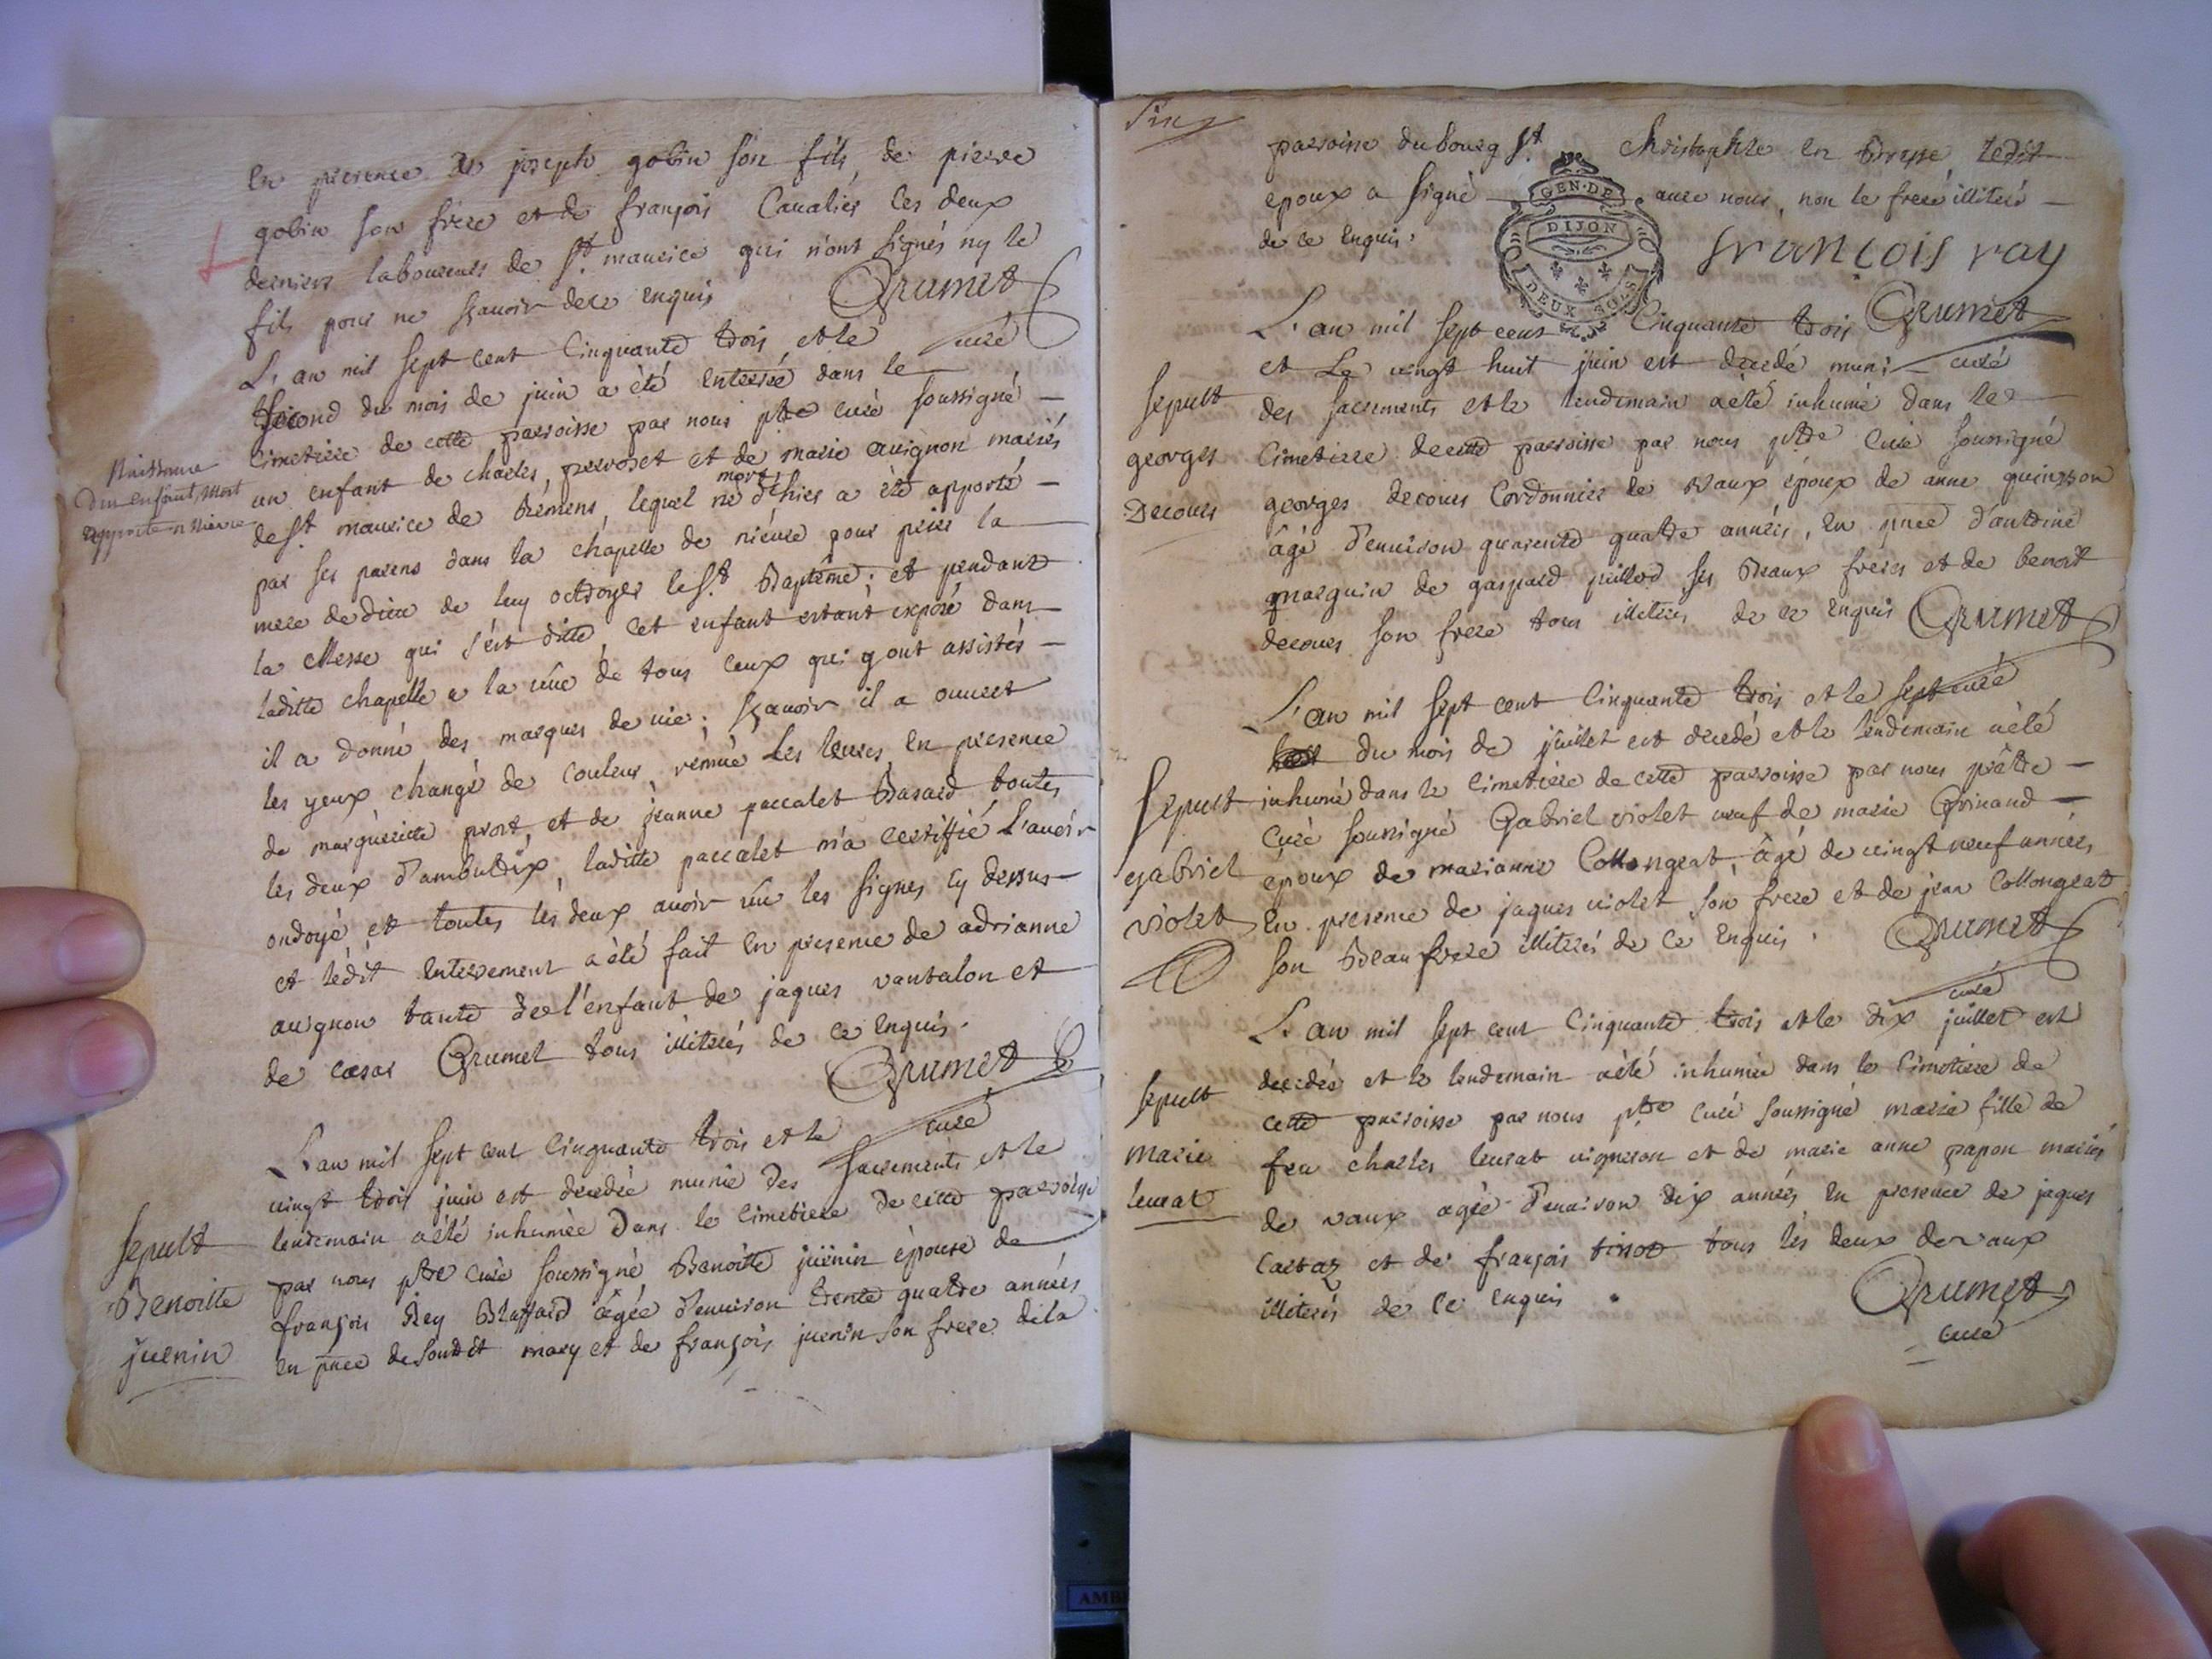 en presence de joseph gobin son fils, de pierre
gobin son frere et de françois Cavalier les deux
derniers laboureurs de St. maurice qui n'ont signés ny le
fils pour ne sçavoir de ce enquis
Grumet
curé
L'an mil sept cent cinquante trois, et le
second du mois de juin a été enterré dans le
cimetiere de cette parroisse par nous ptre curé soussigné
un enfant de charles, prevoset et de marie avignon mariés
de St. maurice de Remens, lequel né mort d'hier a été apporté
par ses parens dans la chapelle de niévre pour prier la
mere de dieu de luy octroyer le St. Baptême; et pendant
la Messe qui s'est ditte, cet enfant estant exposé dans
laditte chapelle a la vûe de tous ceux qui y ont assistés
il a donné des marques de vie; sçavoir il a ouvert
les yeux, changé de couleur, rémué les levres, en presence
de margueritte prost, et de jeanne paccalet Basard toutes
les deux d'ambutrix, laditte paccalet m'a certiffié l'avoir
ondoyé et toutes les deux avoir vû les signes cy dessus
et lédit enterrement a été fait en presence de adrianne
avignon tante de l'enfant de jaques vantalon et
de cæsar Grumet tous illiterés de ce enquis.
Grumet
curé
Naissance
d'un enfant mort
apporté a Nievre
L'an mil sept cent cinquante trois et le
vingt trois juin est decedée munie des sacrements et le
lendemain a été inhumée dans le cimetiere de cette parroisse
par nous ptre curé soussigné Benoitte juënin épouse de
françois Rey Blaffard âgée d'environ trente quatre années
en pnce de soudit mary et de françois juenin son frere de la
sepult
Benoitte
juenin
parroisse du bourg St. christophle en Bresse ledit
epoux a signé avec nous, non le frere illiteré
de ce enquis.
GEN. DE
DIJON
DEUX SOLS
françois ray
Grumet
curé
L'an mil sept cent cinquante trois
et le vingt huit juin est decedé muni
des sacrements et le lendemain a été inhumé dans le
cimetiere de cette parroisse par nous ptre curé soussigné
georges decours cordonnier de vaux époux de anne quinsson
âgé d'environ quarente quatre années, en pnce d'antoine
marguin de gaspard juillerd ses Beaux freres et de benoit
decours son frere tous illiterés de ce enquis
Grumet
curé
sepult
georges
Decours
L'an mil sept cent cinquante trois et le sept
du mois de juillet est decedé et le lendemain a été
inhumé dans le cimetiere de cette parroisse par nous prêtre
curé soussigné Gabriel violet veuf de marie Grinand
époux de marianne Collongeat, âgé de vingt neuf années,
en presence de jaques violet son frere et de jean Collongeat
son Beau frere illiterés de ce enquis.
Grumet
curé
sepult
gabriel
violet
L'an mil sept cent cinquante trois et le dix juillet est
decedée et le lendemain a été inhumée dans le cimetiere de
cette parroisse par nous ptre curé soussigné marie fille de
feu charles leurat vigneron et de marie anne papon mariés
de vaux agée d'environ dix années en presence de jaques
Cartaz et de françois tissot tous les deux de vaux
illiterés de ce enquis.
Grumet
curé
sepult
marie
leurat
AMB